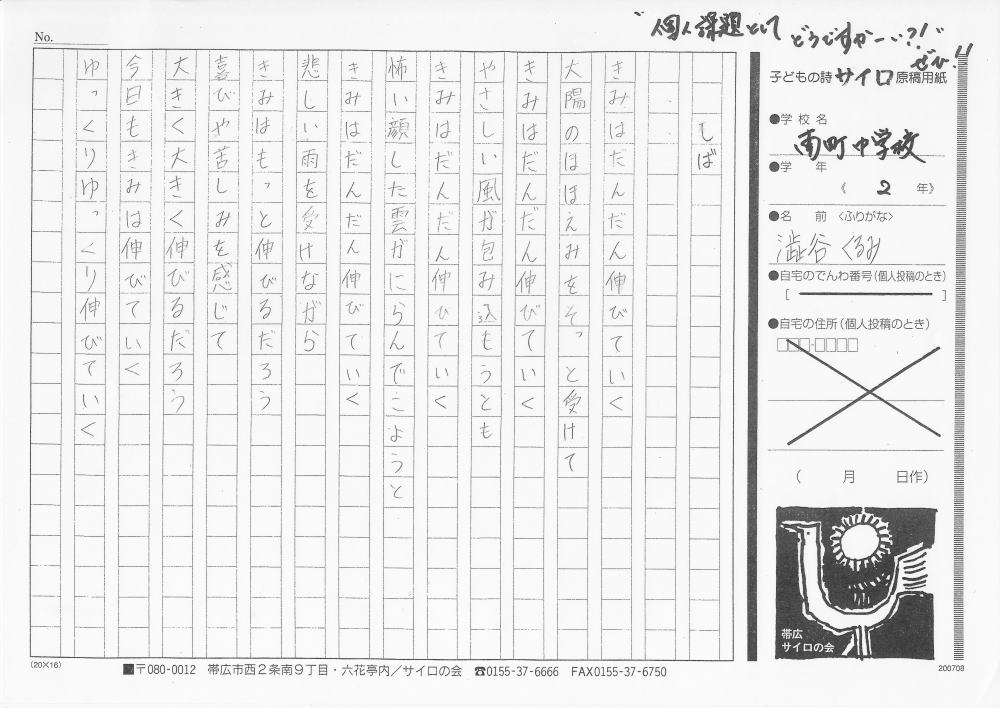 No.
"個人課題として どうですかー…?!"
ぜひ!!
子どもの詩 サイロ 原稿用紙
●学校名
南町中学校
●学　年
《 2 年》
●名　前〈ふりがな〉
澁谷 くるみ
●自宅のでんわ番号(個人投稿のとき)
[ ]
●自宅の住所(個人投稿のとき)
□□□-□□□□
( 月 日作)
帯広
サイロの会
200708
しば
きみはだんだん伸びていく
大陽のほほえみをそっと受けて
きみはだんだん伸びていく
やさしい風が包み込もうとも
きみはだんだん伸びていく
怖い顔した雲がにらんでこようと
きみはだんだん伸びていく
悲しい雨を受けながら
きみはもっと伸びるだろう
喜びや苦しみを感じて
大きく大きく伸びるだろう
今日もきみは伸びていく
ゆっくりゆっくり伸びていく
(20×16)
■〒080-0012 帯広市西2条南9丁目・六花亭内/サイロの会 ☎0155-37-6666 FAX0155-37-6750